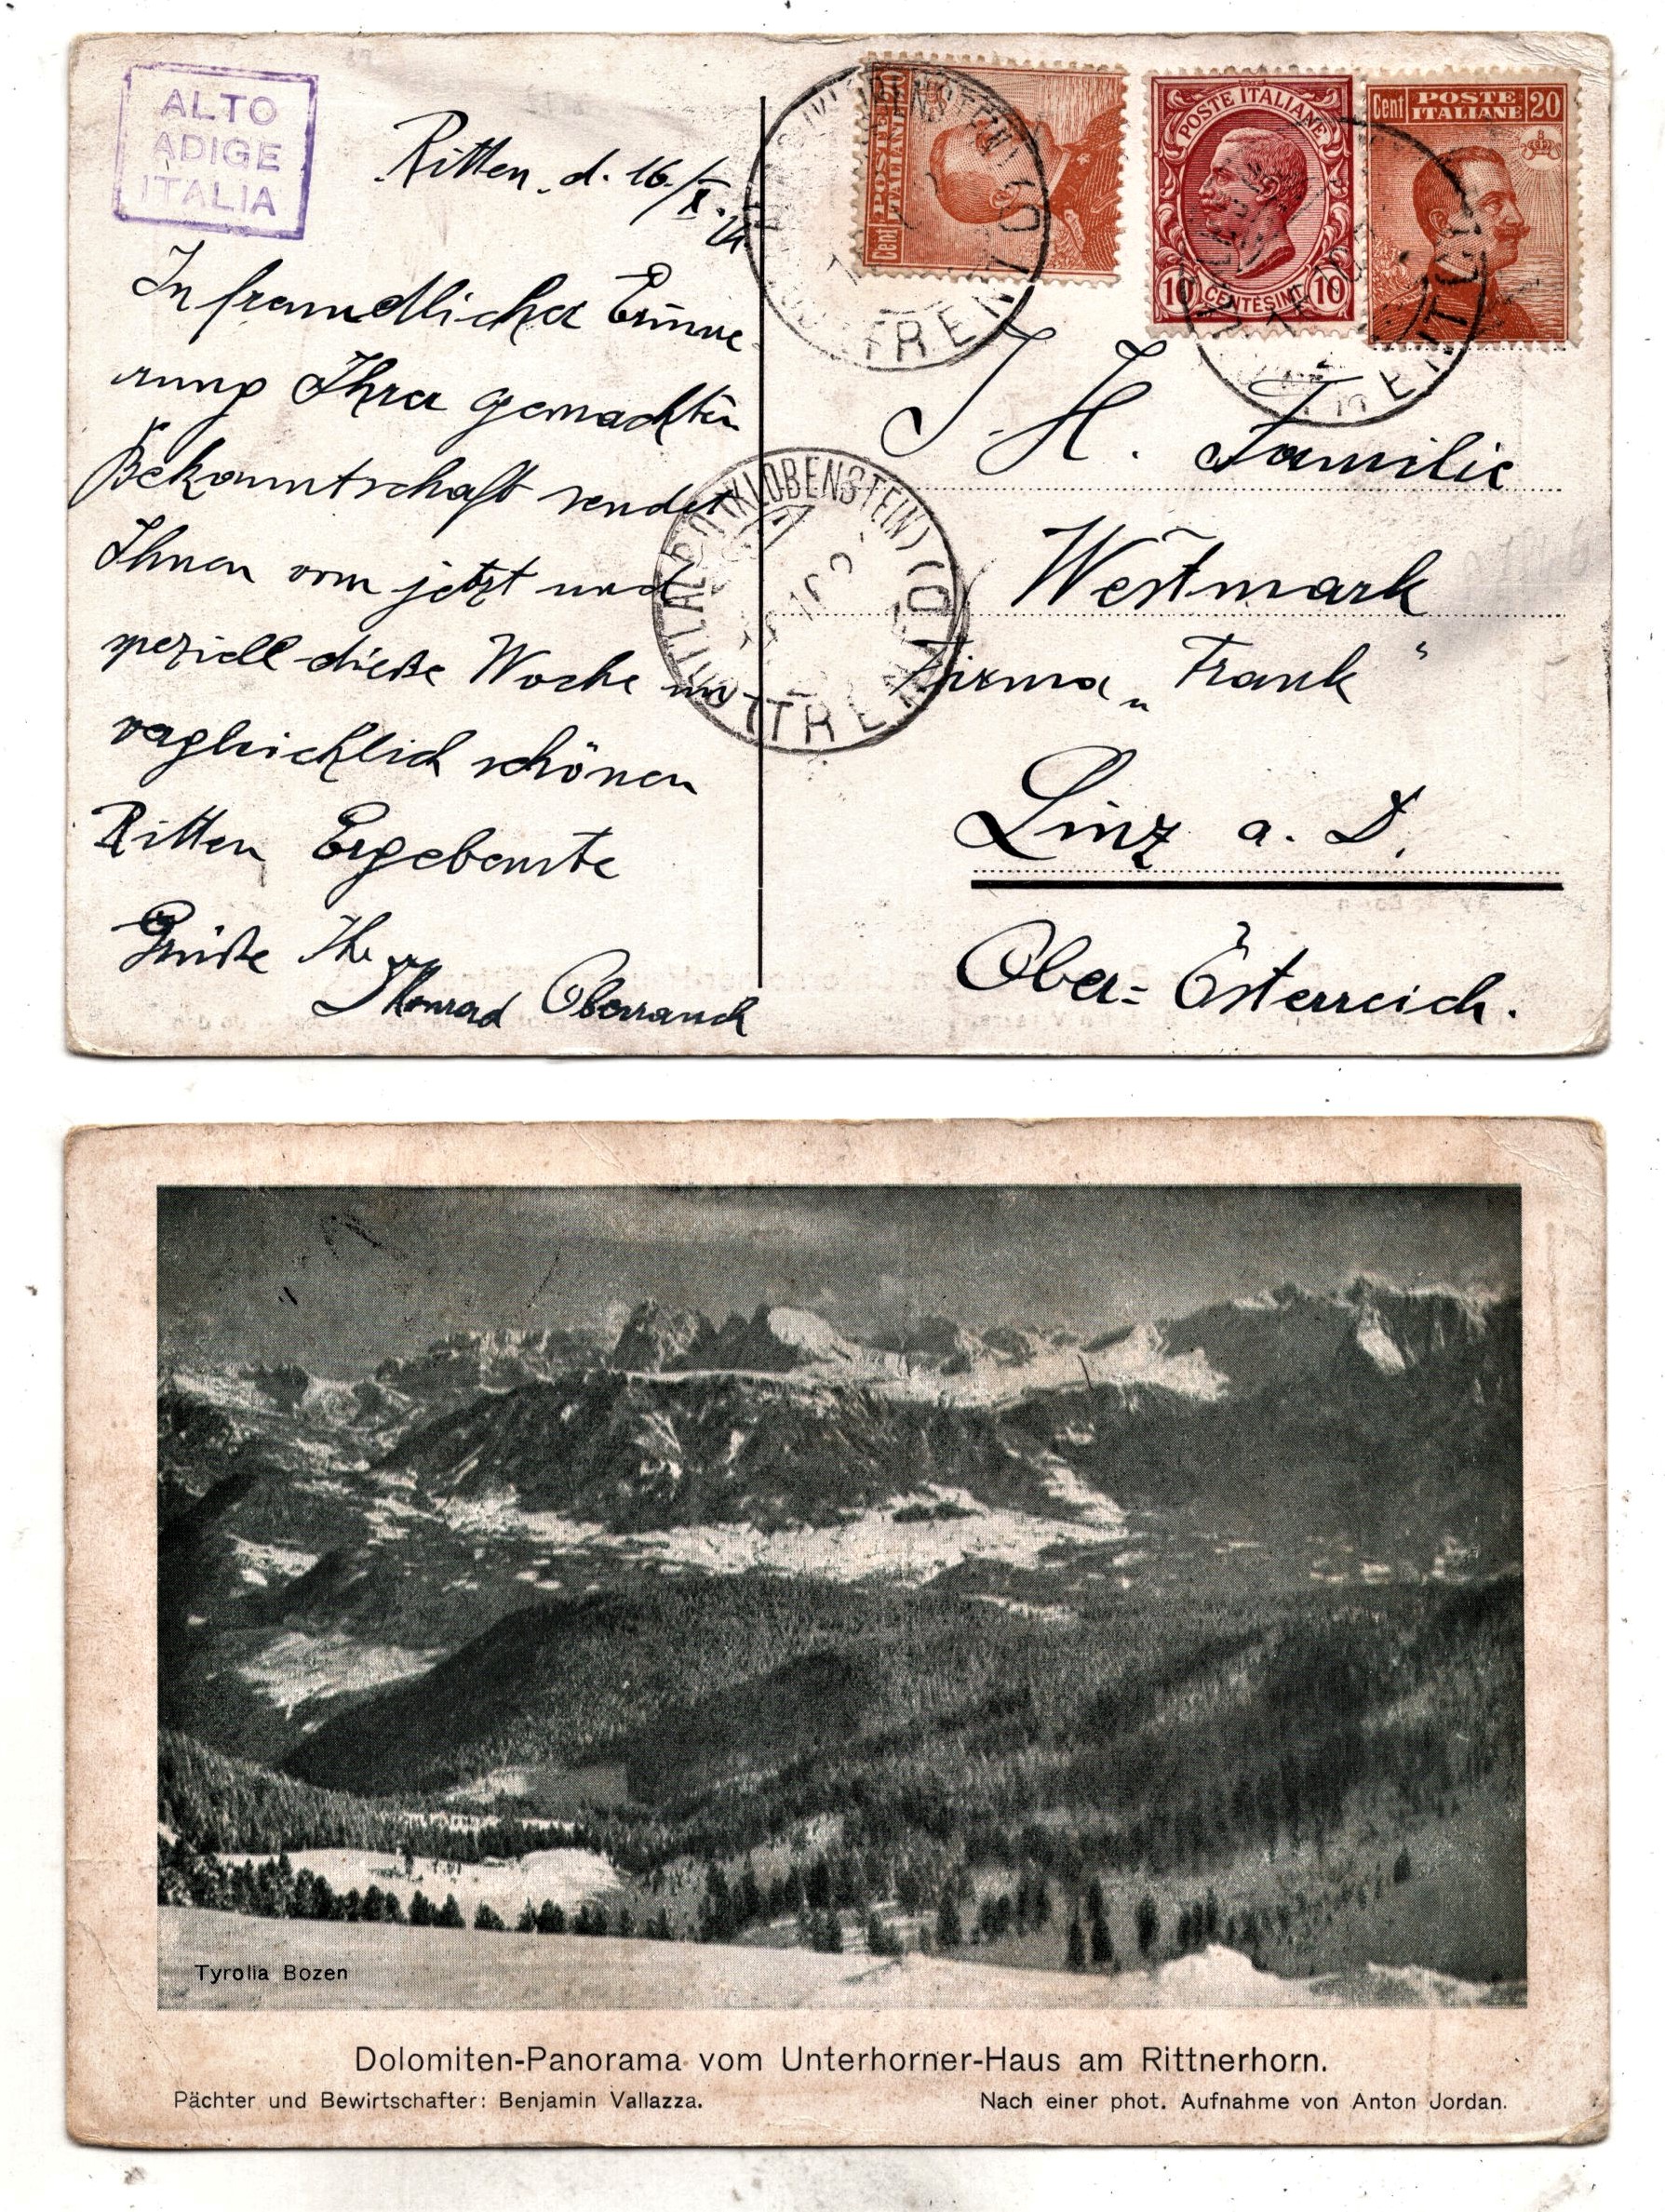 ALTO
ADIGE
ITALIA
Ritten, d. 16./X.
In freundlicher Erinne-
rung Ihrer gemachten
Bekanntschaft sendet
Ihnen vom jetzt und
speziell dieße Woche un
vergleichlich schönen
Ritten Ergebenste
Grüße Ihr
Konrad Oberrauch
Cent POSTE ITALIANE 20
POSTE ITALIANE
10 CENTESIMI 10
Cent POSTE ITALIANE 20
(KLOBENSTEIN)
TRENTO
J. H. Familie
Westmark
Firma „Frank“
Linz a. D.
Ober=Österreich.
Tyrolia Bozen
Dolomiten-Panorama vom Unterhorner-Haus am Rittnerhorn.
Pächter und Bewirtschafter: Benjamin Vallazza.
Nach einer phot. Aufnahme von Anton Jordan.